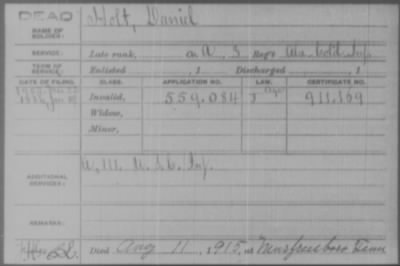 DEAD
NAME OF SOLDIER: Holt, Daniel
SERVICE: Late rank, Co. A, 3 Reg't Ala. Cold. Inf.
TERM OF SERVICE: Enlisted , 1 Discharged , 1
DATE OF FILING. CLASS. APPLICATION NO. LAW. CERTIFICATE NO.
Invalid, 559.084 J 911.169
Widow,
Minor,
ADDITIONAL SERVICES: A, 111 U.S.C. Inf.
REMARKS:
Died Aug 11, 1915, at Murfreesboro Tenn